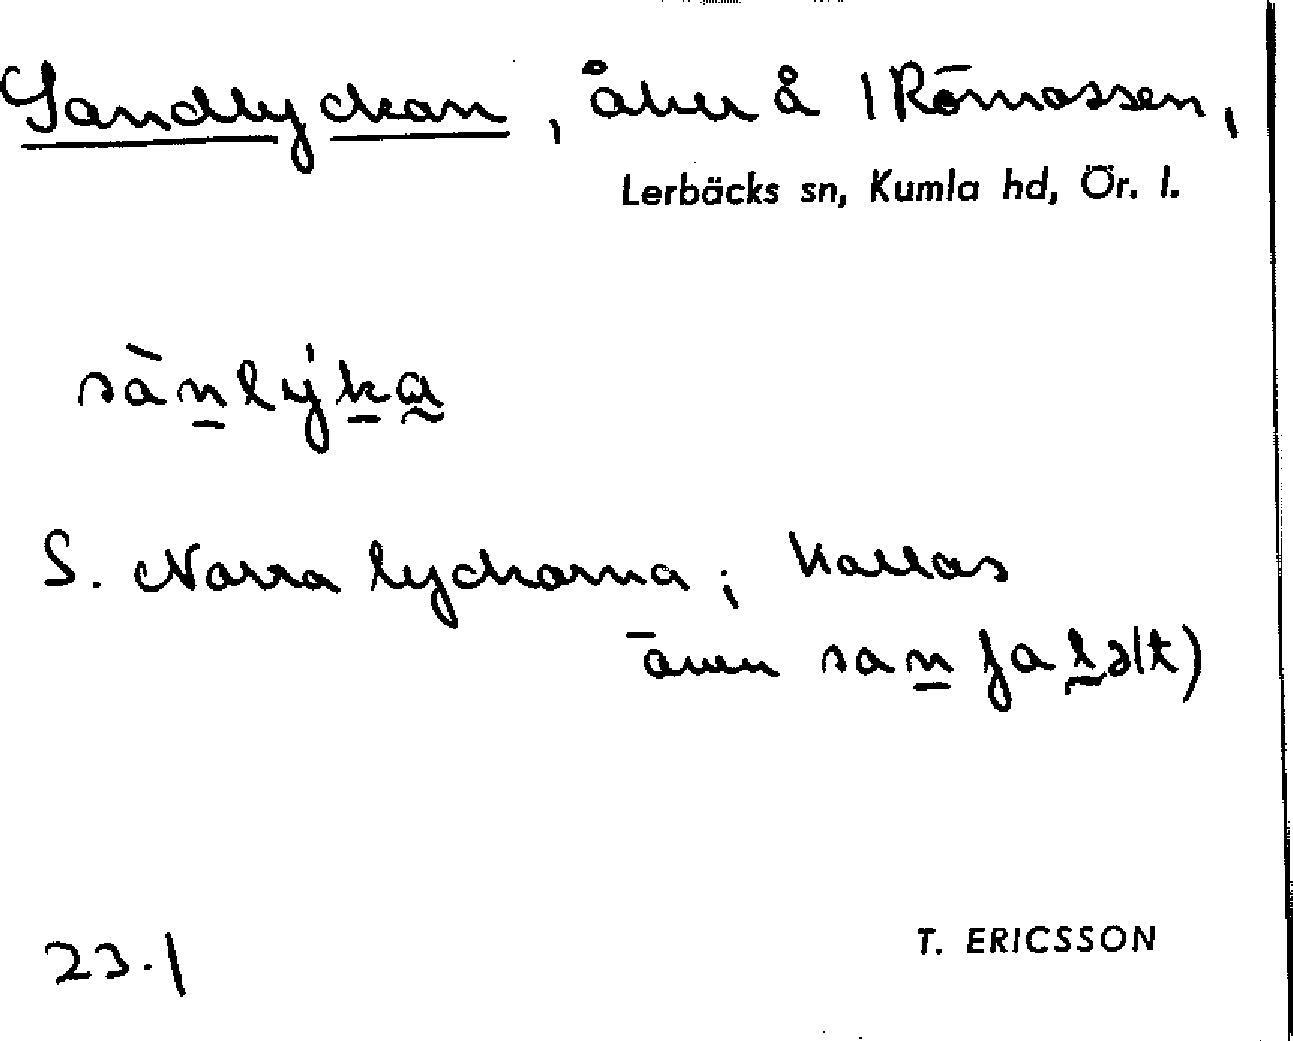 Sandlyckan, åker å 1 Römossen,
Lerbäcks sn, Kumla hd, Ör. l.
sànlýka
S. Norra lyckorna; kallas
även san falə(t)
23.1
T. ERICSSON